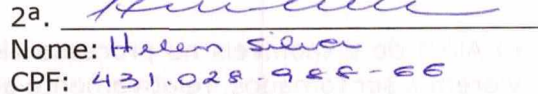 2ª.
Nome: Helen Silva
CPF: 431.028.988-66